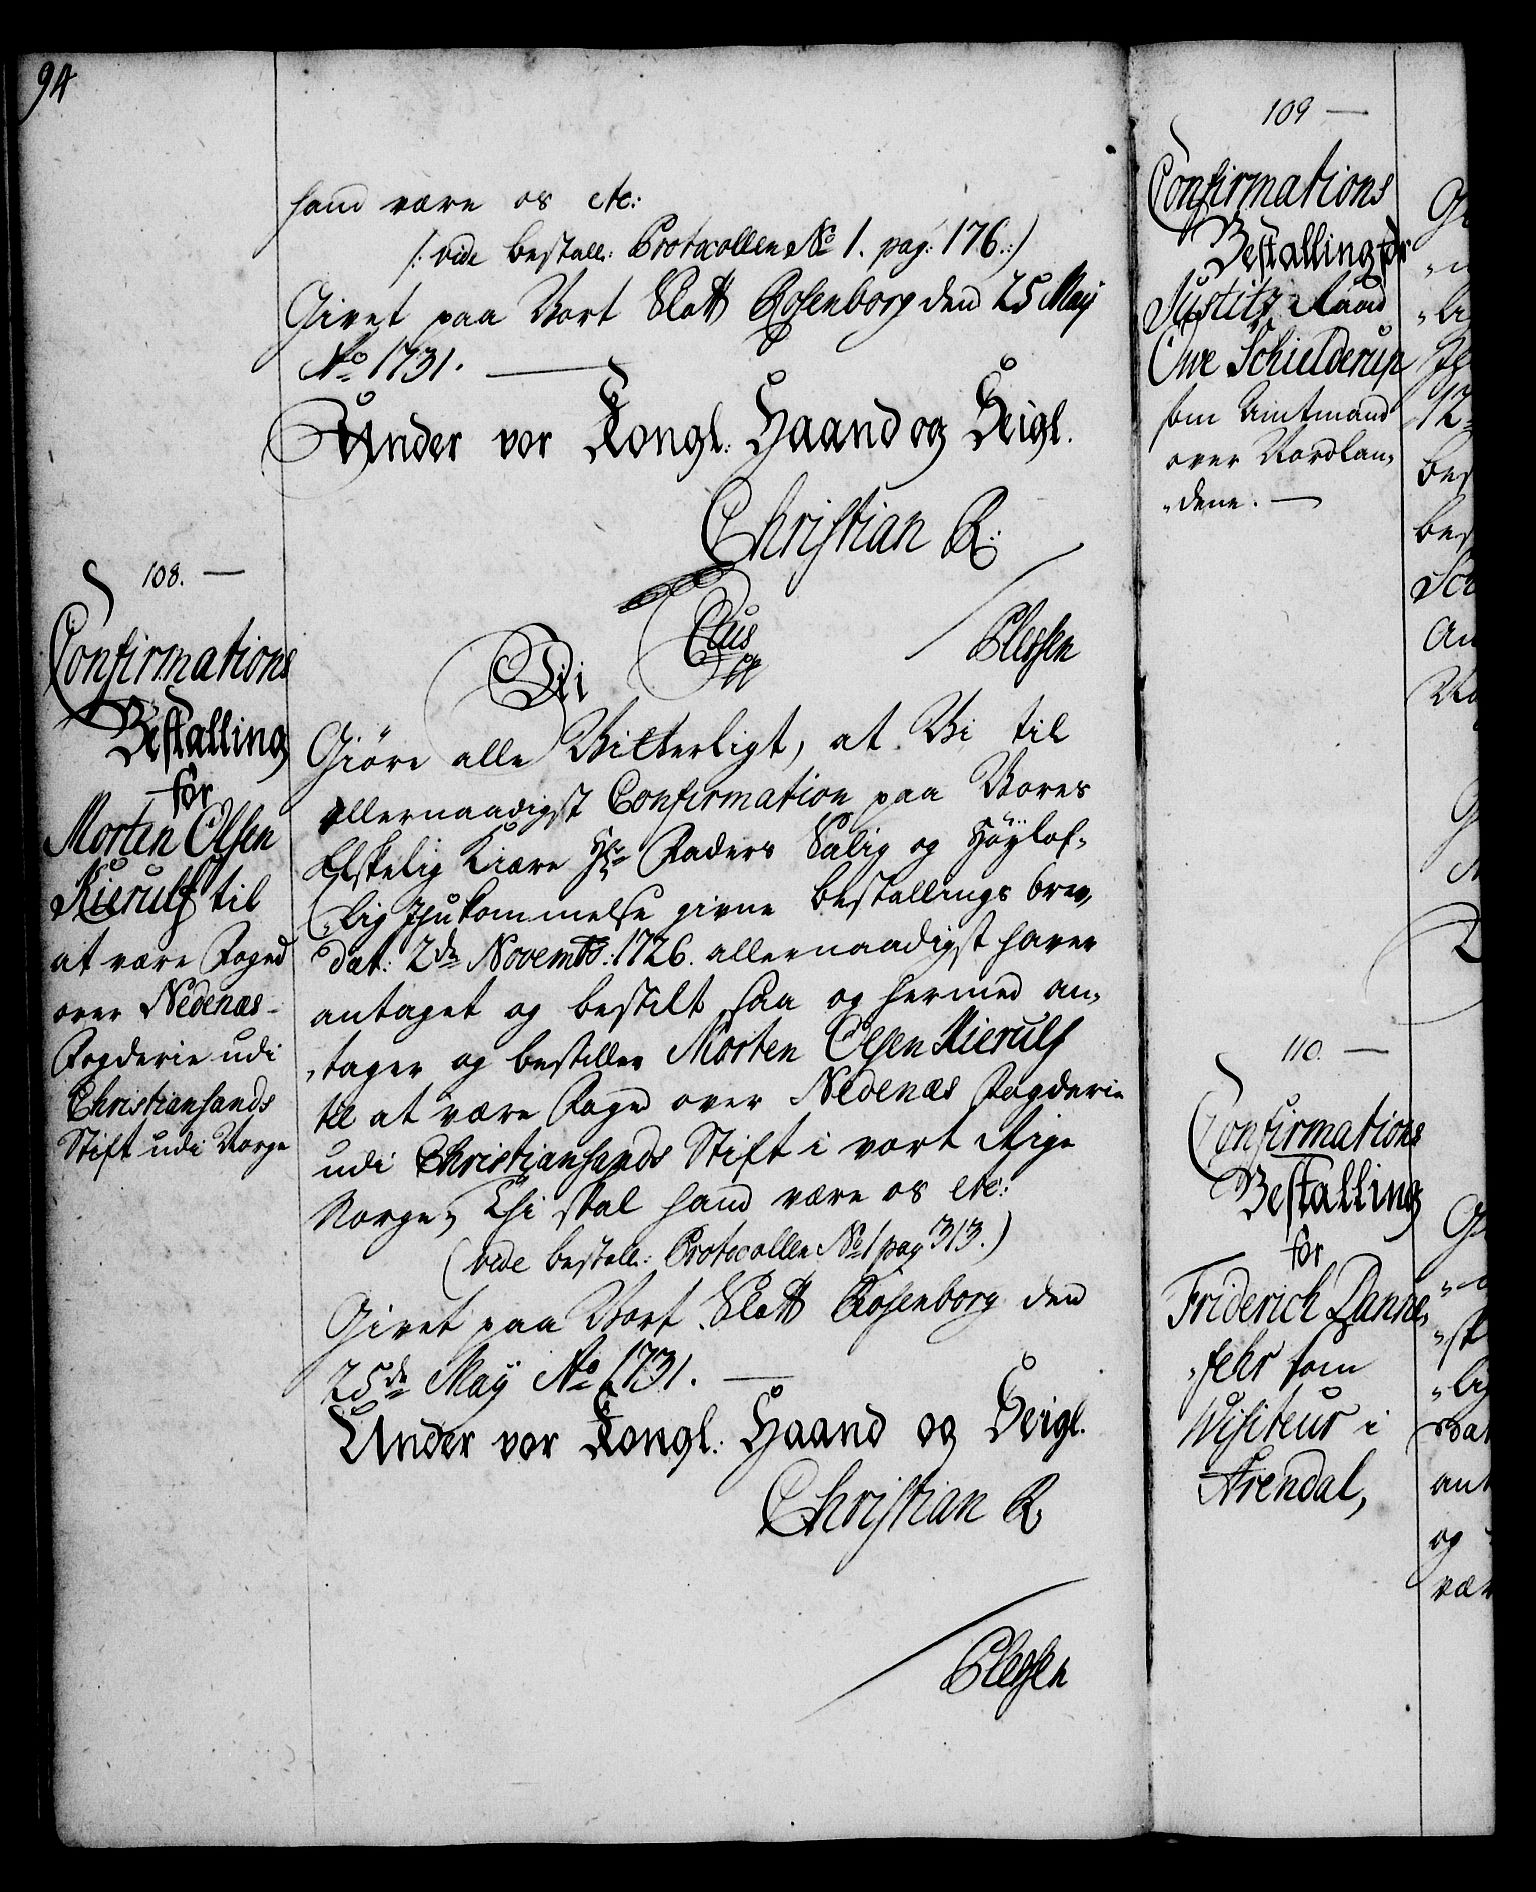 94
hand være os etc:
(: vide bestall: Protocollen No 1. pag: 176.:)
Givet paa Vort Slott Rosenborg den 25 Maij
Ao 1731.
Under vor Kongl. Haand og Seigl.
Christian R.
Plessen
108.
Confirmations
Bestalling
for
Morten Olsen
Kierulf til
at være Foged
over Nedenæs
Fogderie udi
Christiansands
Stift udi Norge
Vi
Giøre alle Vitterligt, at Vi til
allernaadigst Confirmation paa Vores
Elskelig Kiære Hr Faders Salig og Høylof-
lig Ihukommelse givne bestallings brev,
dat: 2de Novembr: 1726. allernaadigst haver
antaget og bestilt, saa og hermed an-
tager og bestiller Morten Olsen Kierulf
til at være Foged over Nedenæs Fogderie
udi Christiansands Stift i vort Rige
Norge; Thi skal hand være os etc:
(vide bestall: Protocollen No 1 pag 313.)
Givet paa Vort Slott Rosenborg den
25de Maÿ Ao 1731.
Under vor Kongl. Haand og Seigl.
Christian R.
Plessen
109
Confirmations
Bestalling for
Justitz Raad
Owe Schielderup
som Amtmand
over Nordlan-
dene.
110.
Confirmations
Bestalling
for
Friderich Danne-
fehr som
Visiteur i
Arendal,
12
bes
bes
Sch
ant
og
vær